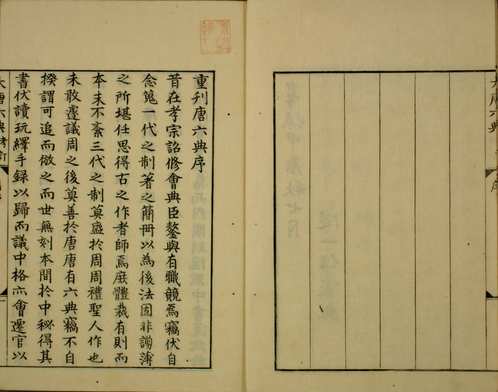 重刋唐六典序
昔在孝宗詔修會典臣鏊與有職競焉竊伏自
念篦一代之制著之簡冊以為後法固非謭薄
之所堪任思得古之作者師焉庶體裁有則而
本末不紊三代之制莫盛於周周禮聖人作也
未敢遽議周之後莫善於唐唐有六典竊不自
揆謂可追而倣之而世無刻本間於中秘得其
書伏讀玩繹手録以歸而議中格亦會遷官以